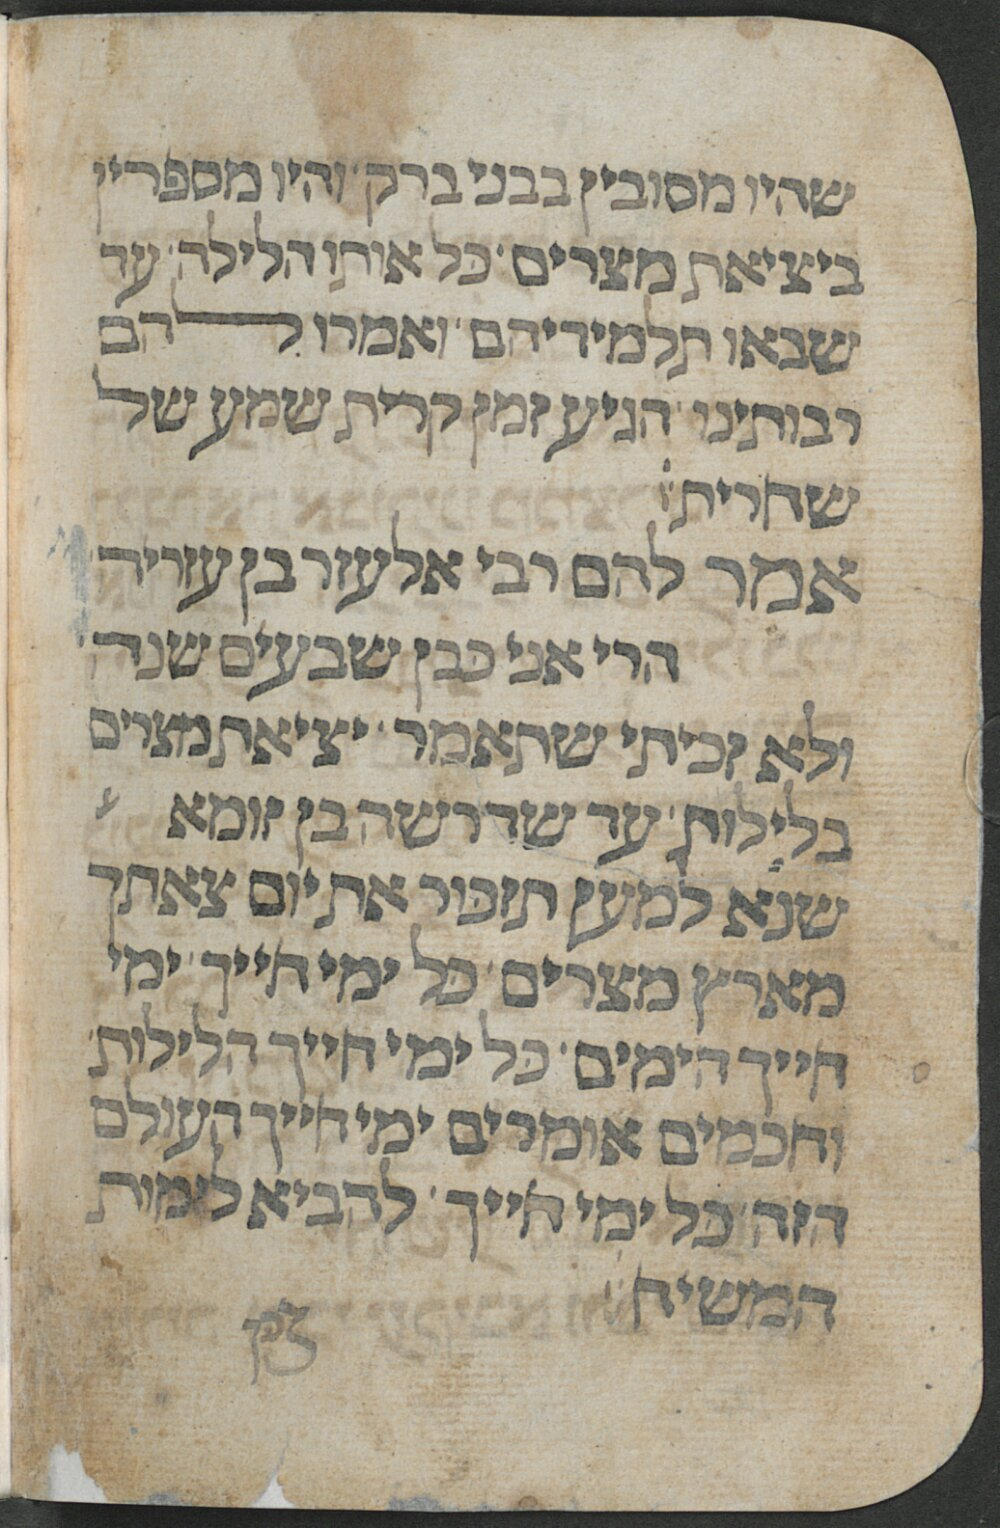 שהיו מסובין בבני ברק והיו מספרין
ביציאת מצרים כל אותו הלילה עד
שבאו תלמידיהם ואמרו להם
רבותינו הגיע זמן קרית שמע של
שחרית
אמר להם רבי אלעזר בן עזריה
הרי אני כבן שבעים שנה
ולא זכיתי שתאמר יציאת מצרים
בלילות עד שדרשה בן זומא
שנ׳א למען תזכור את יום צאתך
מארץ מצרים כל ימי חייך ימי
חייך הימים כל ימי חייך הלילות
וחכמים אומרים ימי חייך העולם
הזה כל ימי חייך להביא לימות
המשיח